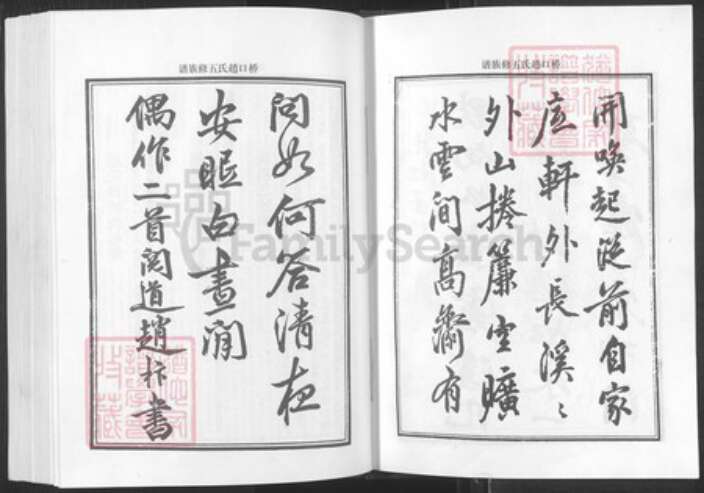 譜族修五氏趙口桥
開喚起從前自家
底軒外長溪〻
外山捲簾空曠
水雲間高齋有
譜族修五氏趙口桥
問如何答清夜
安眠白晝閒
偶作二首閱道趙抃書
FamilySearch